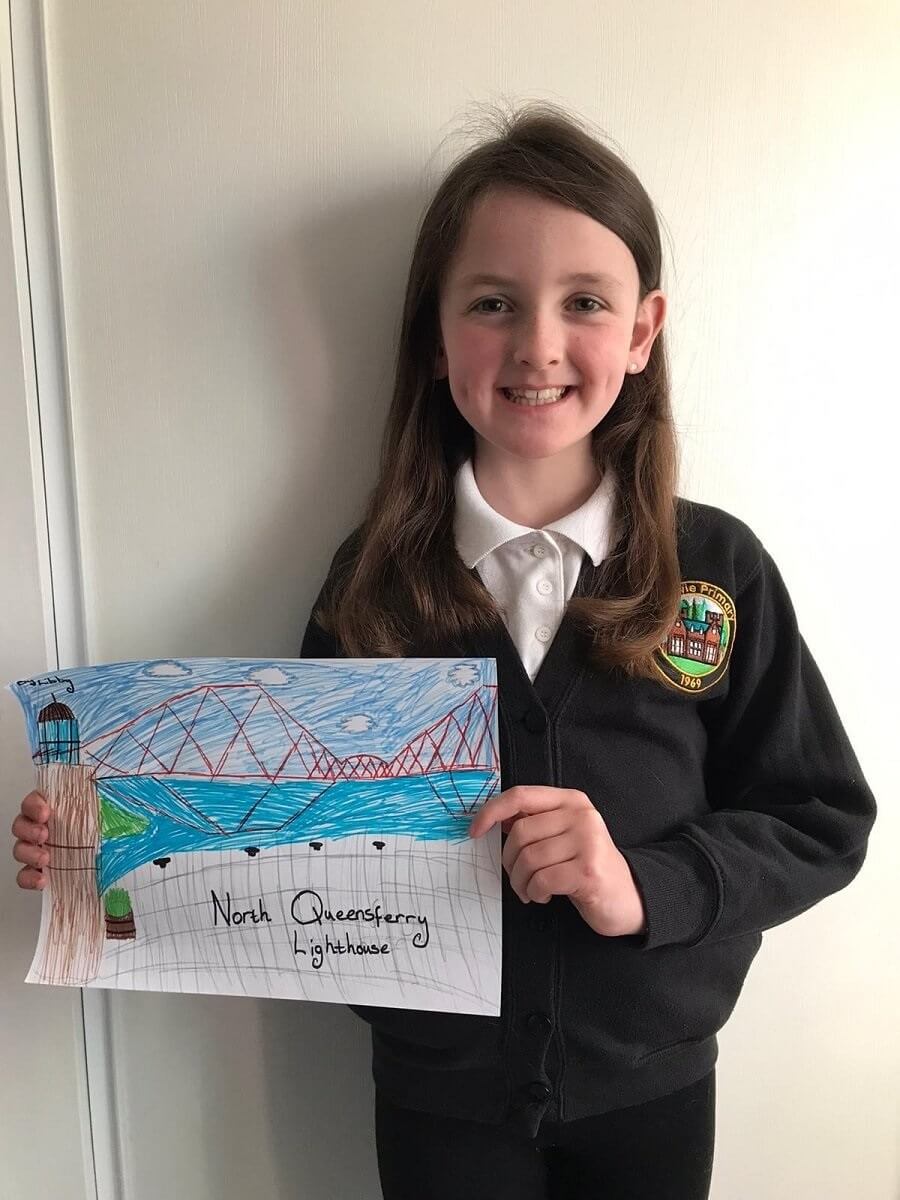 By Libby
North Queensferry
Lighthouse
Primary
1969